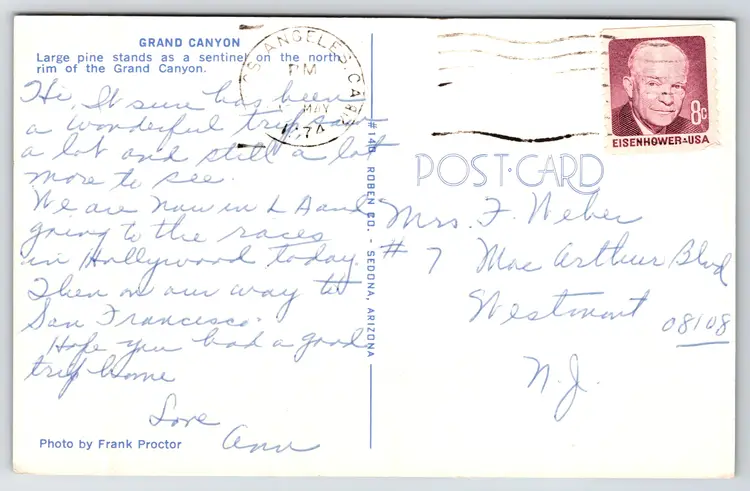 GRAND CANYON
Large pine stands as a sentinel on the north
rim of the Grand Canyon.
Hi, It sure has been
a wonderful trip saw
a lot and still a lot
more to see.
We are now in LA and
going to the races
in Hollywood today.
Then on our way to
San Francisco.
Hope you had a good
trip home
Love
Ann
Photo by Frank Proctor
LOS ANGELES, CA
PM
MAY
1974
#146 ROBEN CO. - SEDONA, ARIZONA
8c
EISENHOWER·USA
POST·CARD
Mrs. F. Weber
# 7 Mac Arthur Blvd
Westmont 08108
N.J.